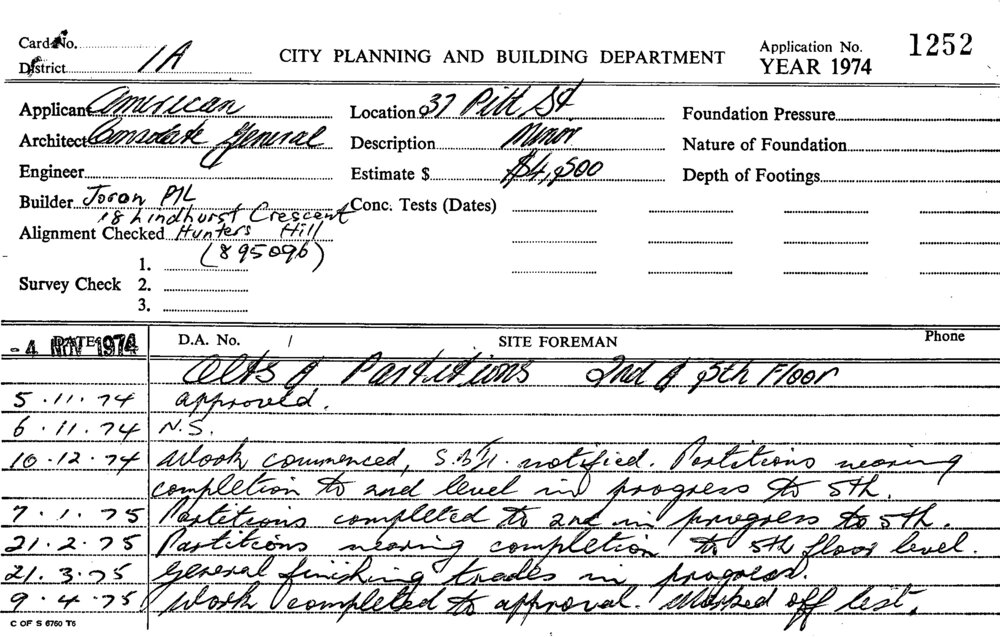 Card No.
District 1A
CITY PLANNING AND BUILDING DEPARTMENT
Application No. 1252
YEAR 1974
Applicant American
Location 37 Pitt St
Foundation Pressure
Architect Consolate General
Description Minor
Nature of Foundation
Engineer
Estimate $ $4,500
Depth of Footings
Builder Joron P/L
18 Lindhurst Crescent
Conc. Tests (Dates)
Alignment Checked Hunters Hill
(895096)
1.
Survey Check 2.
3.
DATE - 4 NOV 1974
D.A. No. /
SITE FOREMAN
Phone
Alts & Partitions 2nd & 5th Floor
5.11.74 approved.
6.11.74 N.S.
10.12.74 Work commenced, notified. Partitions nearing
completion to 2nd level in progress to 5th.
7.1.75 Partitions completed to 2nd in progress to 5th.
21.2.75 Partitions nearing completion to 5th floor level.
21.3.75 General finishing trades in progress.
9.4.75 Work completed to approval. Marked off list.
C OF S 6760 T6